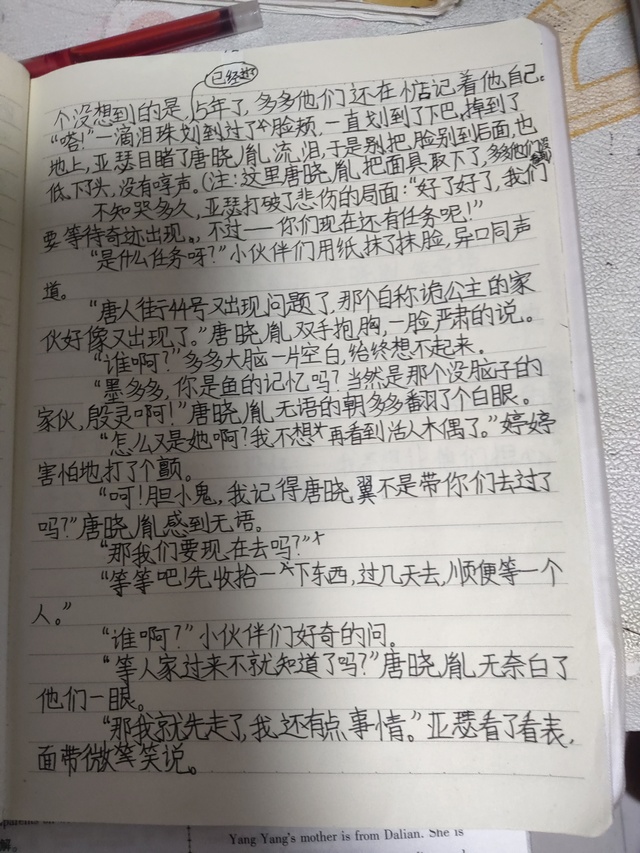 已经过
个没想到的是，5年了，多多他们还在惦记着他自己。
“嗒！”一滴泪珠划到过了个脸颊，一直划到了下巴，掉到了
地上，亚瑟目睹了唐晓胤流泪，于是别把脸别到后面，也
低下头，没有哼声。（注：这里唐晓胤把面具取下了，多多他们
不知哭多久，亚瑟打破了悲伤的局面：“好了好了，我们
要等待奇迹出现。，不过——你们现在还有任务呢！”
“是什么任务呀？”小伙伴们用纸抹了抹脸，异口同声
道。
“唐人街44号又出现问题了，那个自称诡公主的家
伙好像又出现了。”唐晓胤双手抱胸，一脸严肃的说。
“谁啊？”多多大脑一片空白，始终想不起来。
“墨多多，你是鱼的记忆吗？当然是那个没脑子的
家伙，殷灵啊！”唐晓胤无语的朝多多翻了个白眼。
“怎么又是她啊？我不想再看到活人木偶了。”婷婷
害怕地打了个颤。
“呵！胆小鬼，我记得唐晓翼不是带你们去过了
吗？”唐晓胤感到无语。
“那我们要现在去吗？”
“等等吧！先收拾一下东西，过几天去，顺便等一个
人。”
“谁啊？”小伙伴们好奇的问。
“等人家过来不就知道了吗？”唐晓胤无奈白了
他们一眼。
“那我就先走了，我还有点事情。”亚瑟看了看表，
面带微笑说。
解。
Yang Yang's mother is from Dalian. She is